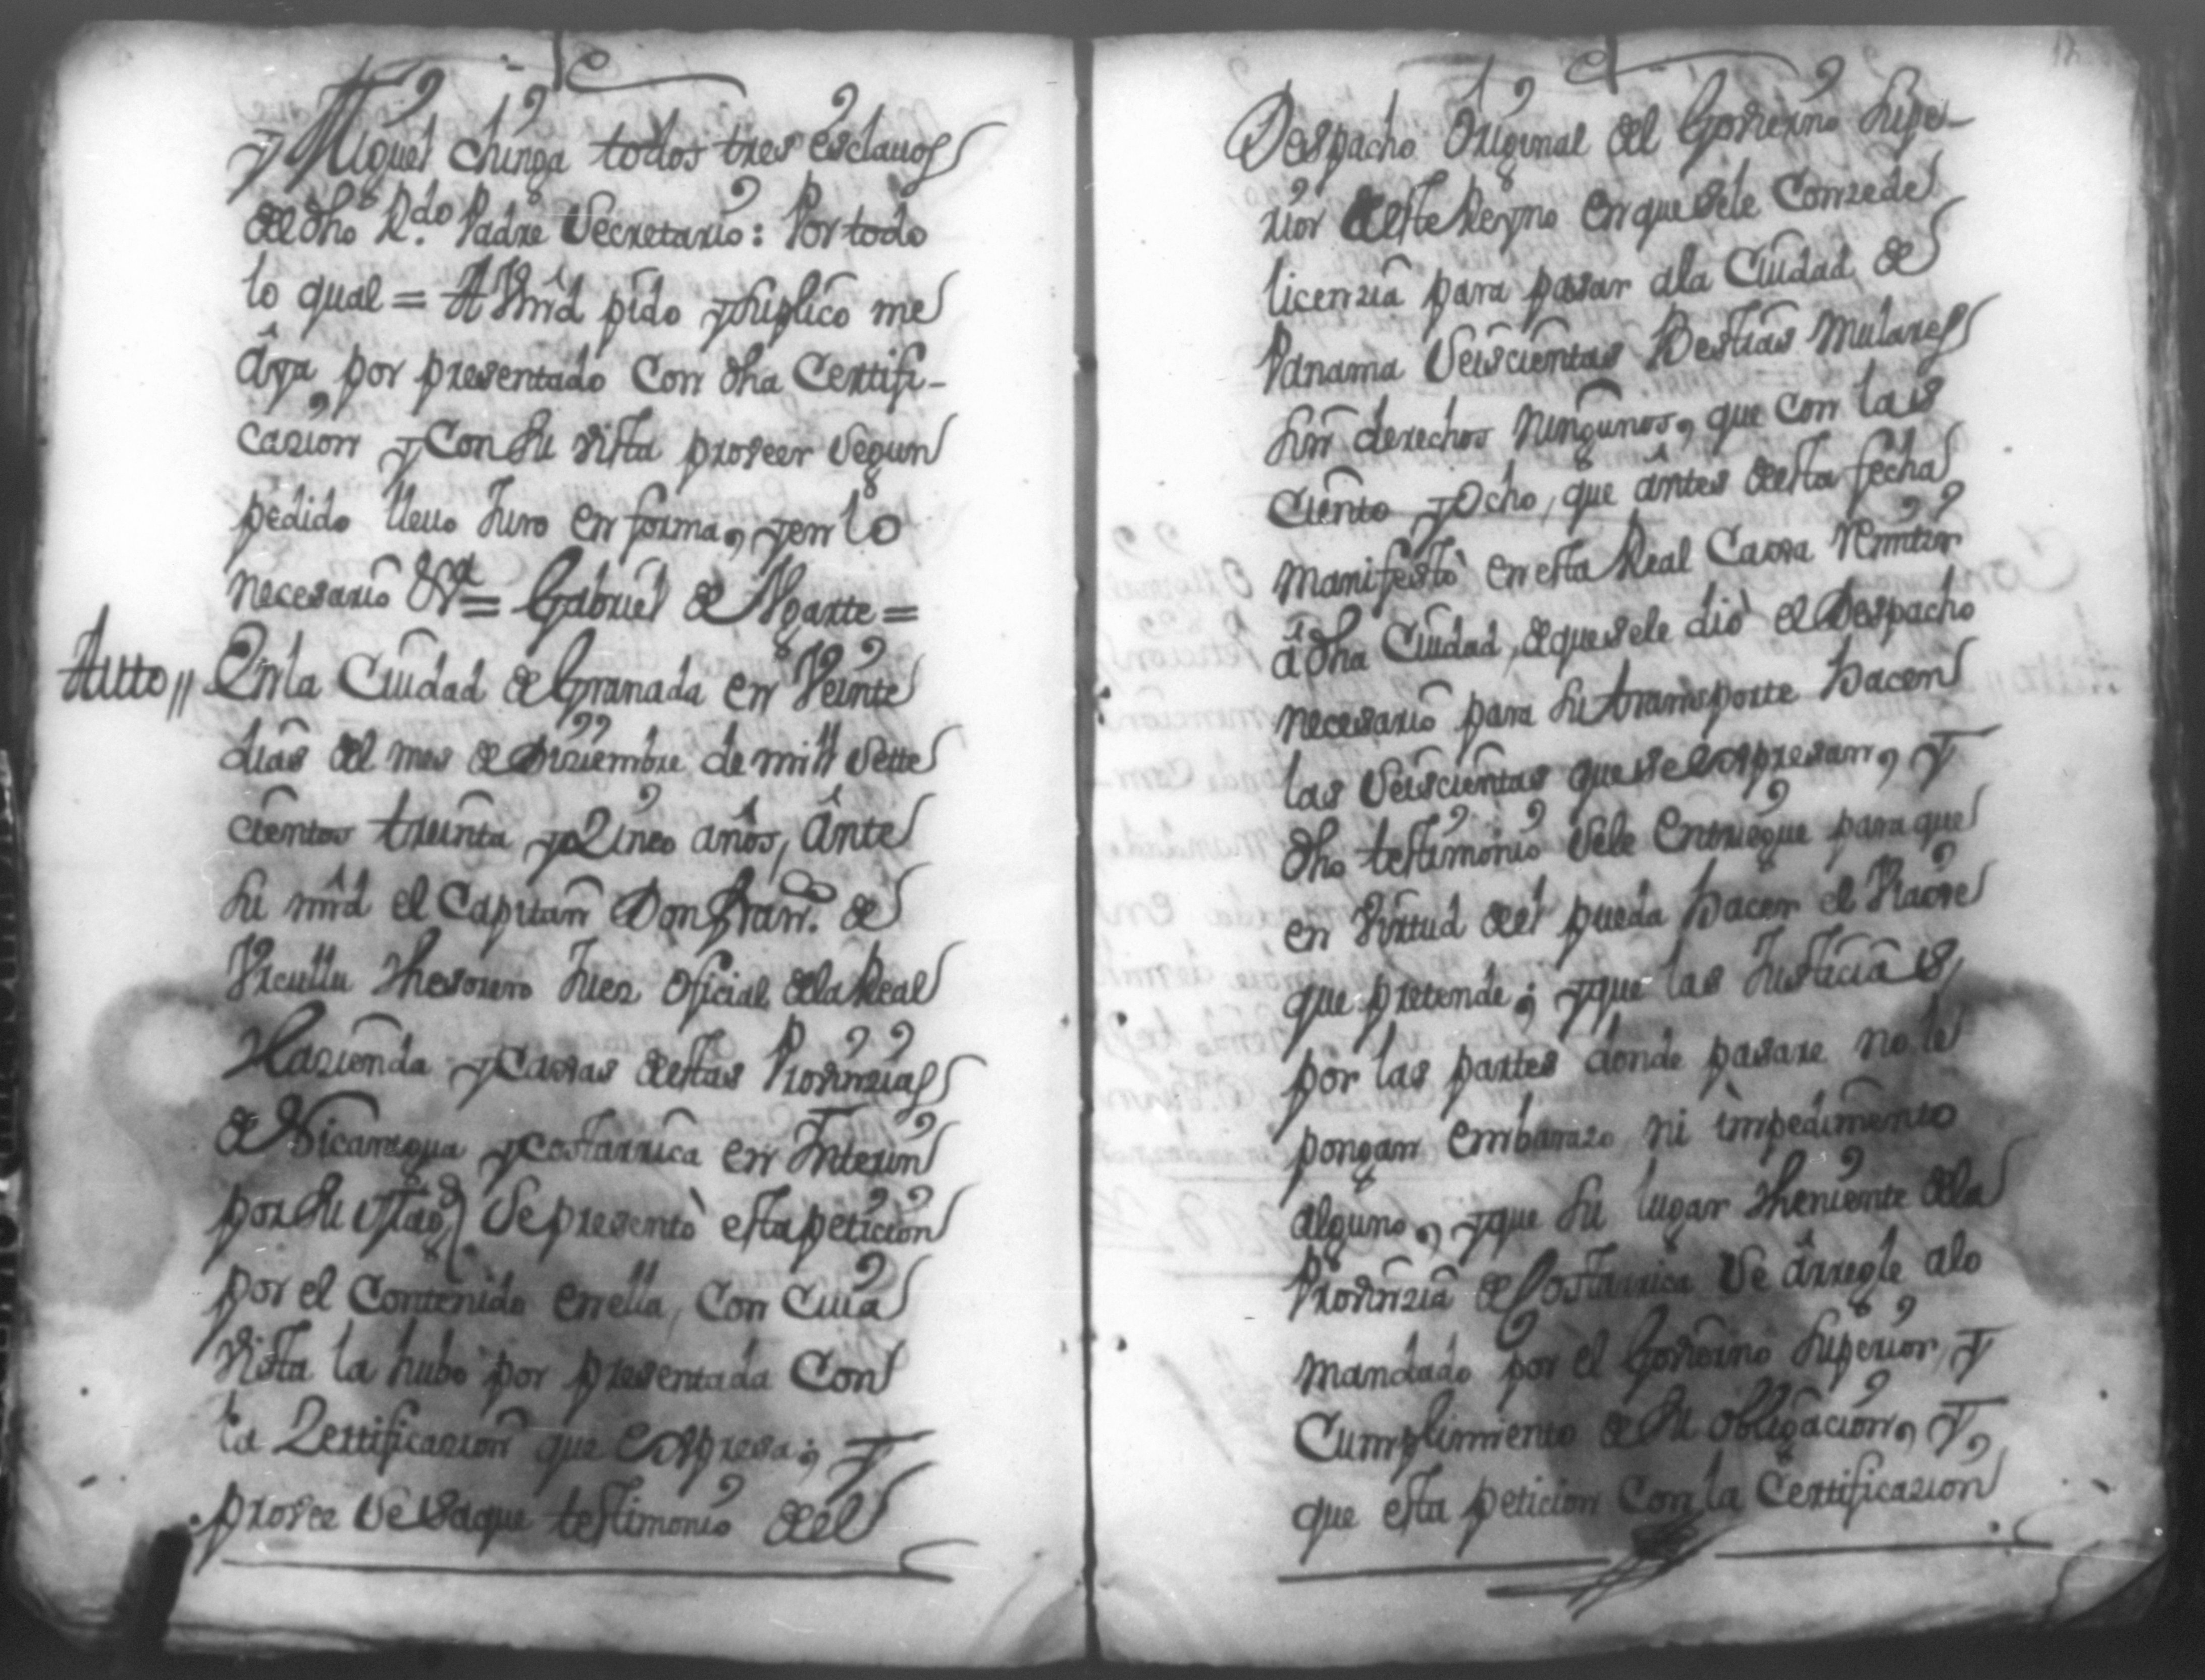 y Miguel chinga todos tres esclauos
del dho R.do Padre Secretario: Por todo
lo qual = A Vmrd pido y suplico me
aya por presentado con dha Certifi-
cazion y Con su vista proveer segun
pedido lleuo Juro en forma, y en lo
necesario &ª = Gabriel de Ugarte =
Autto // En la Ciudad de Granada en Veinte
dias del mes de Diziembre de mill sette
cientos treinta y Zinco años, Ante
su mrd el Capitan Don Fran.co de
Vicuttu Thesorero Juez oficial dela Real
Hazienda y Caxas destas Provinzias
de Nicaragua y Costarrica en Interin
por su Mag.d Se presentò esta peticion
por el Contenido en ella, con cuia
vista la hubo por presentada Con
la Zertificazion que Expresa; y
provee se saque testimonio del
Despacho Original del Govierno Supe-
rior deste Reyno en que se le Conzede
licenzia para pasar ala Ciudad de
Panama Seiscientas Bestias mulares
sin derechos ningunos, que con las
Ciento y Ocho, que antes desta fecha
manifestò en esta Real Caxa remitir
à dha Ciudad, de que se le diò el Despacho
necesario para su transporte hacen
las seiscientas que se Expresan, y
dho testimonio se le Entriegue para que
en virtud del pueda hacer el Viaxe
que pretende; y que las Justicias,
por las partes donde pasare no le
pongan embarazo ni impedimento
alguno, y que su lugar Theniente dela
Provinzia de Costarrica se arregle alo
mandado por el Govierno Superior, y
Cumplimiento de su obligacion, y,
que esta peticion con la Certificazion